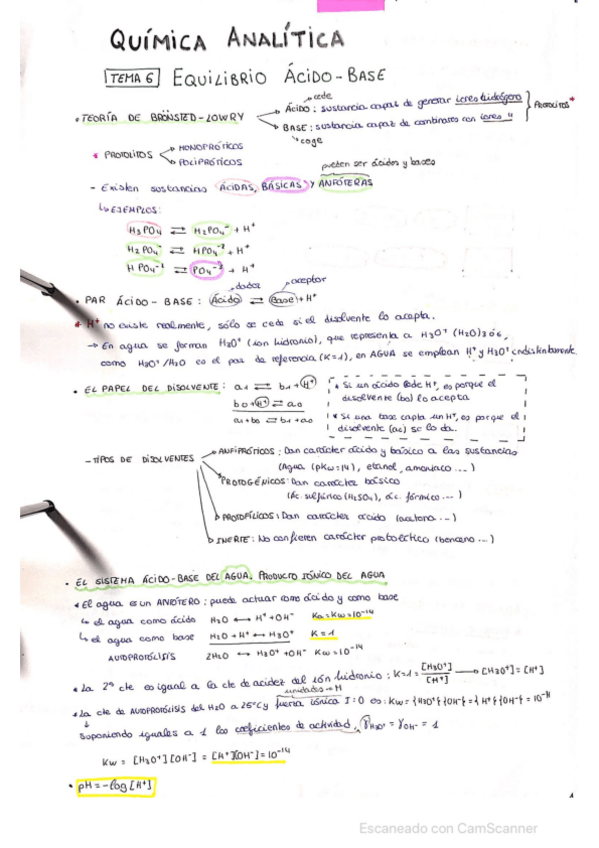 QUÍMICA ANALÍTICA
TEMA 6 EQUILIBRIO ÁCIDO-BASE
• TEORÍA DE BRÖNSTED-LOWRY
cede
ÁCIDO: sustancia capaz de generar iones hidrógeno
BASE: sustancia capaz de combinarse con iones "
coge
PROTOLITOS *
* PROTOLITOS
MONOPRÓTICOS
POLIPRÓTICOS
pueden ser ácidos y bases
- EXISTEN sustancias ÁCIDAS, BÁSICAS y ANFÓTERAS
↳ EJEMPLOS:
H3PO4 ⇄ H2PO4⁻ + H⁺
H2PO4⁻ ⇄ HPO4⁻² + H⁺
HPO4⁻¹ ⇄ PO4⁻³ + H⁺
dador aceptor
• PAR ÁCIDO-BASE: Ácido ⇄ Base + H⁺
* H⁺ no existe realmente, sólo se cede si el disolvente lo acepta.
→ En agua se forman H3O⁺ (ion hidronio), que representa a H3O⁺ (H2O)3
como H3O⁺/H2O es el par de referencia (K=1), en AGUA se emplean H⁺ y H3O⁺ indistintamente.
• EL PAPEL DEL DISOLVENTE: a1 ⇄ b1 + H⁺
b0 + H⁺ ⇄ a0
a1 + b0 ⇄ b1 + a0
* Si un ácido cede H⁺, es porque el
disolvente (b0) lo acepta
* Si una base capta un H⁺, es porque el
disolvente (a0) se lo da..
- TIPOS DE DISOLVENTES
ANFIPRÓTICOS: Dan carácter ácido y básico a las sustancias
(Agua (pKw=14), etanol, amoniaco...)
PROTOGÉNICOS: Dan carácter básico
(Ác. sulfúrico (H2SO4), ác. fórmico...)
PROTOFÍLICOS: Dan carácter ácido (acetona...)
INERTE: No confieren carácter protolítico (benceno...)
• EL SISTEMA ÁCIDO-BASE DEL AGUA. PRODUCTO IÓNICO DEL AGUA
* El agua es un ANFÓTERO: puede actuar como ácido y como base
↳ el agua como ácido H2O ⟷ H⁺ + OH⁻ Ka=Kw=10⁻¹⁴
↳ el agua como base H2O + H⁺ ⟷ H3O⁺ K=1
AUTOPROTÓLISIS 2H2O ⟷ H3O⁺ + OH⁻ Kw=10⁻¹⁴
* La 2ª cte es igual a la cte de acidez del ión hidronio: K=1= [H3O⁺]/[H⁺] → [H3O⁺]=[H⁺]
unidades → M
* La cte de AUTOPROTÓLISIS del H2O a 25°C y fuerza iónica I=0 es: Kw={H3O⁺}{OH⁻}={H⁺}{OH⁻}=10⁻¹⁴
↓
Suponiendo iguales a 1 los coeficientes de actividad, γH3O⁺ = γOH⁻ = 1
Kw = [H3O⁺][OH⁻] = [H⁺][OH⁻] = 10⁻¹⁴
• pH = -log [H⁺]
Escaneado con CamScanner